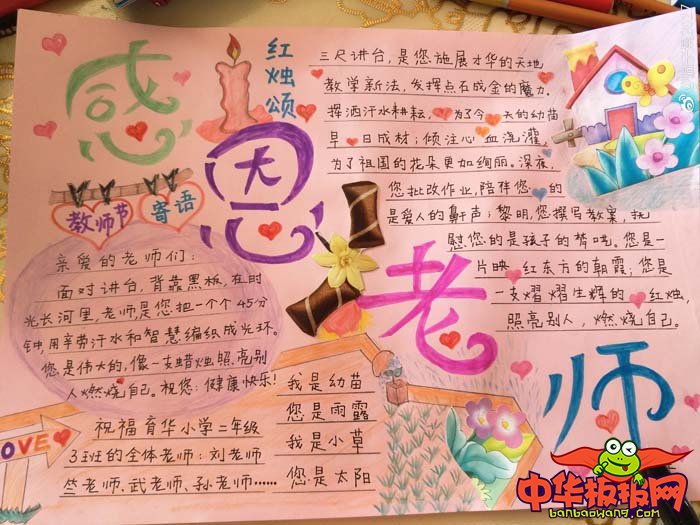 感恩老师
红烛颂
三尺讲台，是您施展才华的天地
教学新法，发挥点石成金的魔力。
挥洒汗水耕耘，为了今天的幼苗
早日成材；倾注心血浇灌，
为了祖国的花朵更加绚丽。深夜，
您批改作业，陪伴您的
是爱人的鼾声；黎明，您撰写教案，抚
慰您的是孩子的梦呓。您是一
片映红东方的朝霞；您是
一支熠熠生辉的红烛，
照亮别人，燃烧自己。
教师节寄语
亲爱的老师们：
面对讲台，背靠黑板，在时
光长河里，老师是您把一个个45分
钟，用辛劳汗水和智慧编织成光环。
您是伟大的，像一支蜡烛照亮别
人燃烧自己。祝您：健康快乐！
我是幼苗
您是雨露
我是小草
您是太阳
LOVE
祝福育华小学二年级
3班的全体老师：刘老师
老师、武老师、孙老师……
中华板报网
banbaowang.com